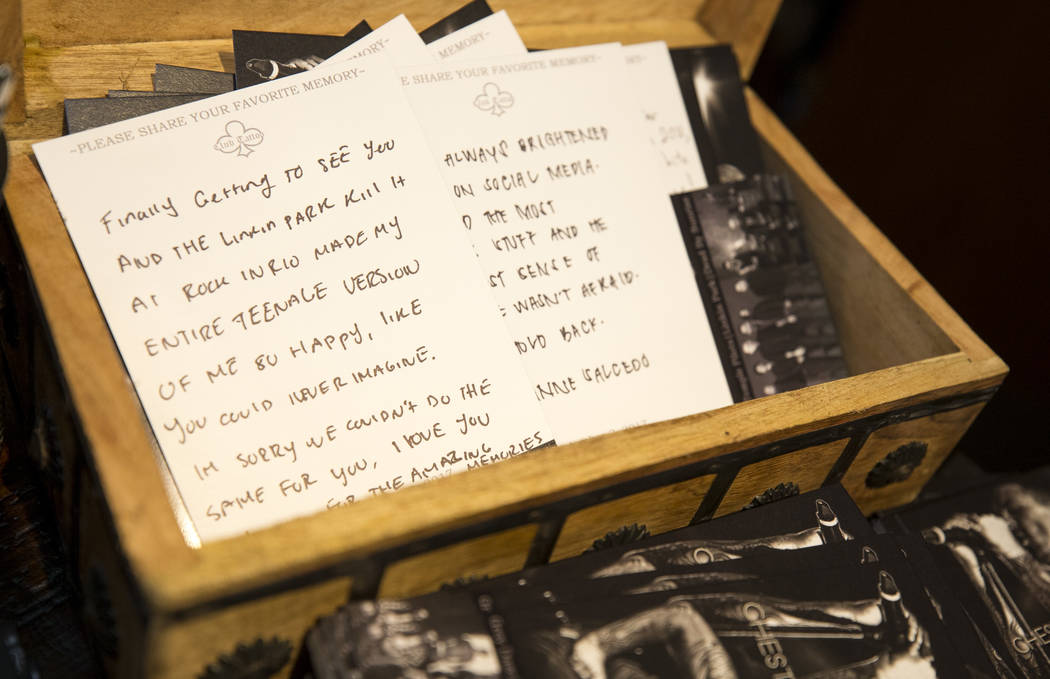 ~PLEASE SHARE YOUR FAVORITE MEMORY~
Club Tattoo
Finally Getting TO SEE YOU
AND THE LINKIN PARK Kill It
AT ROCK IN RIO MADE MY
ENTIRE TEENAGE VERSION
OF ME SO HAPPY, LIKE
YOU COULD NEVER IMAGINE.
IM SORRY WE COULDN'T DO THE
SAME FOR YOU, I LOVE YOU
FOR THE AMAZING
MEMORIES
MEMORY~
MEMORY~
E SHARE YOUR FAVORITE MEMORY~
Club Tattoo
ALWAYS BRIGHTENED
ON SOCIAL MEDIA.
THE MOST
STUFF AND HE
ST SENSE OF
E WASN'T AFRAID.
OLD BACK.
NNE SALCEDO
CHEST
CHES